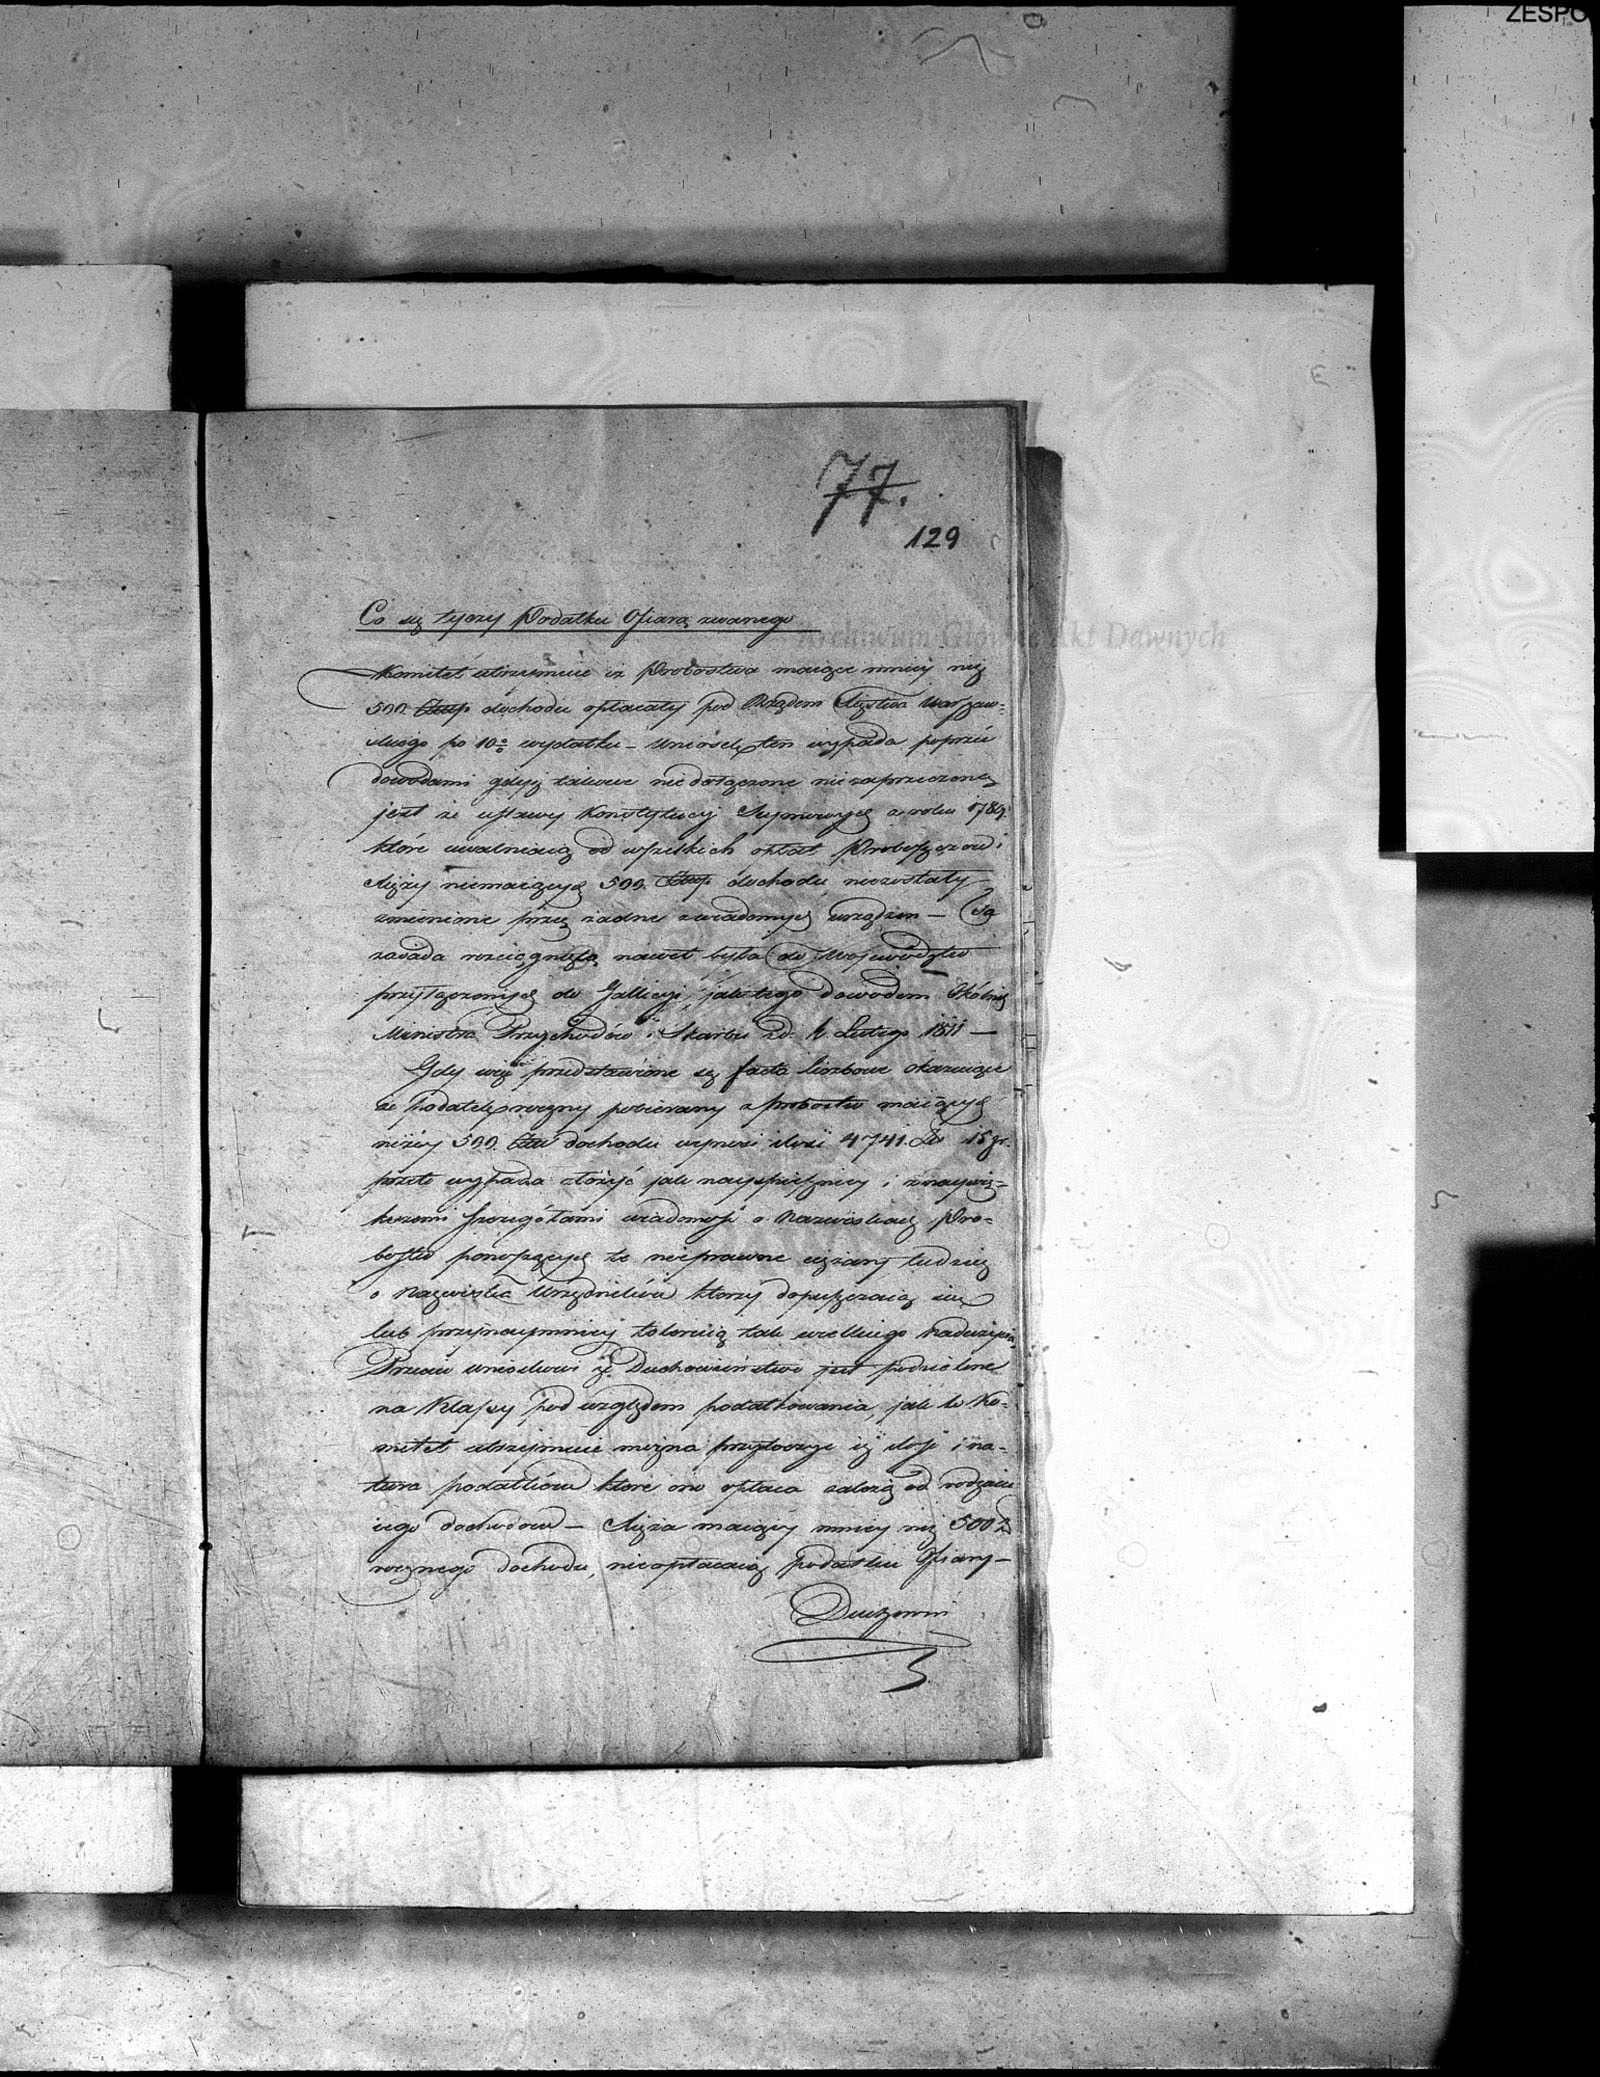 ZESPO
77.
129
Archiwum Główne Akt Dawnych
Co się tyczy Podatku Ofiarą zwanego
Komitet utrzymuie iż Probostwa maiące mniey niż
500. Złłp dochodu opłacały pod Rządem Xięstwa Warszaw-
skiego po 10% wydatku – Wniosek ten wypada poprzeć
dowodami gdyż takowe niedołączone niezaprzeczoną
jest że ustawy Konstytucyi Seymowych z roku 1789.
które uwalniaią od wszelkich opłat Proboszczów i
Xięży niemaiących 500. Złłp dochodu, niezostały
zmienione przez żadne z wiadomych urządzeń – Ta
zasada rozciągniętą nawet była do Województw
przyłączonych do Gallicyi, jak tego dowodem Okólnik
Ministra Przychodów i Skarbu z d. 6 Lutego 1811 —
Gdy więc przedstawione są facta liczbowe okazuiące
że podatek roczny pobierany z probostw maiących
niżey 500. Złłp dochodu wynosi ilość 4741. Zł 15 gr.
przeto wypada złożyć jak nayspieszniey i z naywię-
kszemi szczegółami wiadomość o Nazwiskach Pro-
bostw ponoszących te nieprawne ciężary tudzież
o Nazwiska Urzędników którzy dopuszczaią się
lub przynaymniey toleruią tak wielkiego nadużycia,
Przeciw wnioskowi że Duchowieństwo jest podzielone
na Klassy pod względem podatkowania, jak to Ko-
mitet utrzymuie można przytoczyć iż ilość i na-
tura podatków które ono opłaca zależą od rodzaiu
iego dochodów – Xięża maiący mniey niż 500 Zł
rocznego dochodu, nieopłacaią podatku Ofiary –